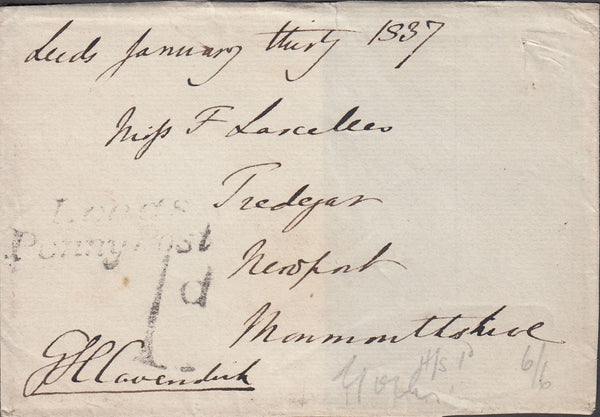 Leeds January thirty 1837
Miss F Lascelles
Tredegar
Leeds
Penny Post
Newport
1d
Monmouthshire
GH Cavendish
H/S 1d
6/6